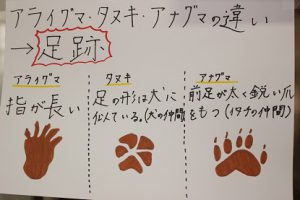 アライグマ・タヌキ・アナグマの違い
→足跡
アライグマ
指が長い
タヌキ
足の形は犬に
似ている。(犬の仲間)
アナグマ
前足が太く鋭い爪
をもつ(イタチの仲間)